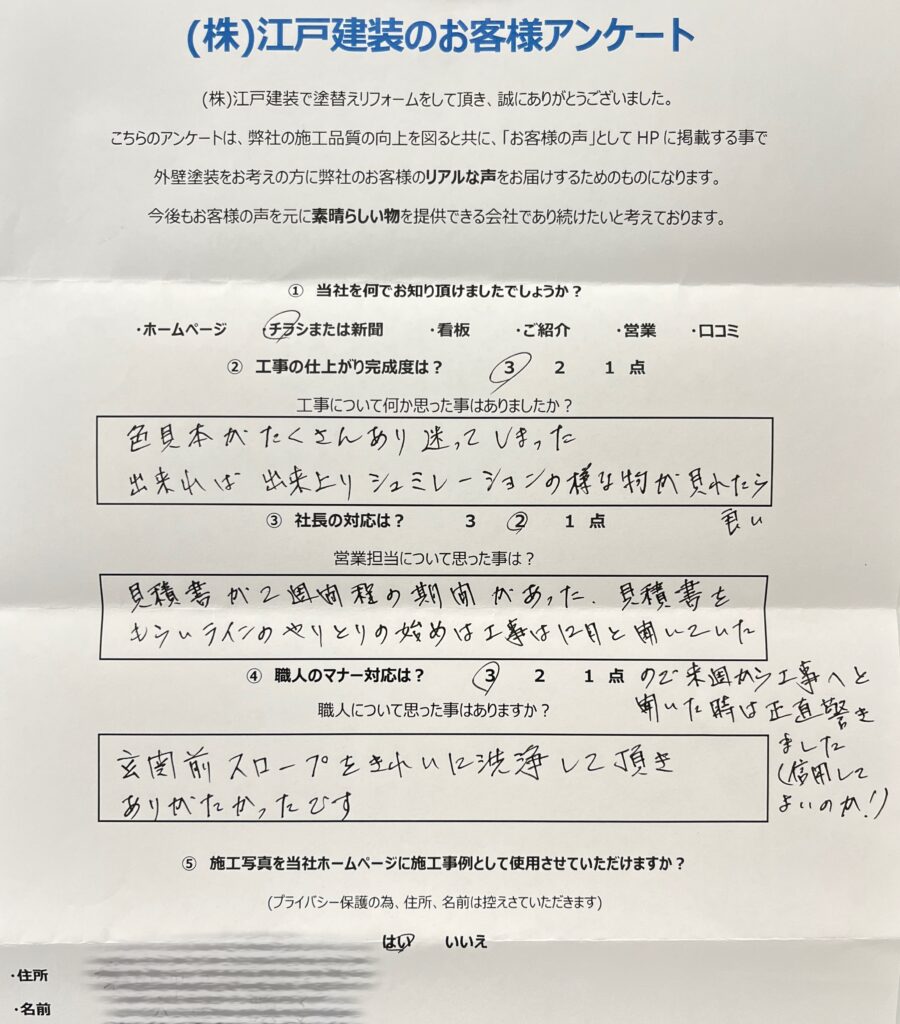 (株)江戸建装のお客様アンケート
(株)江戸建装で塗替えリフォームをして頂き、誠にありがとうございました。
こちらのアンケートは、弊社の施工品質の向上を図ると共に、「お客様の声」としてHPに掲載する事で
外壁塗装をお考えの方に弊社のお客様のリアルな声をお届けするためのものになります。
今後もお客様の声を元に素晴らしい物を提供できる会社であり続けたいと考えております。
① 当社を何でお知り頂けましたでしょうか？
・ホームページ ・チラシまたは新聞 ・看板 ・ご紹介 ・営業 ・口コミ
② 工事の仕上がり完成度は？ 3 2 1 点
工事について何か思った事はありましたか？
色見本がたくさんあり迷ってしまった
出来れば 出来上りシュミレーションの様な物が見れたら
良い
③ 社長の対応は？ 3 2 1 点
営業担当について思った事は？
見積書が2週間程の期間があった、見積書を
もらいラインのやりとりの始めは工事は12月と聞いていた
④ 職人のマナー対応は？ 3 2 1 点
ので来週から工事へと
聞いた時は正直驚き
ました
(信用して
よいのか！)
職人について思った事はありますか？
玄関前スロープをきれいに洗浄して頂き
ありがたかったです
⑤ 施工写真を当社ホームページに施工事例として使用させていただけますか？
(プライバシー保護の為、住所、名前は控えさていただきます)
はい いいえ
・住所
・名前